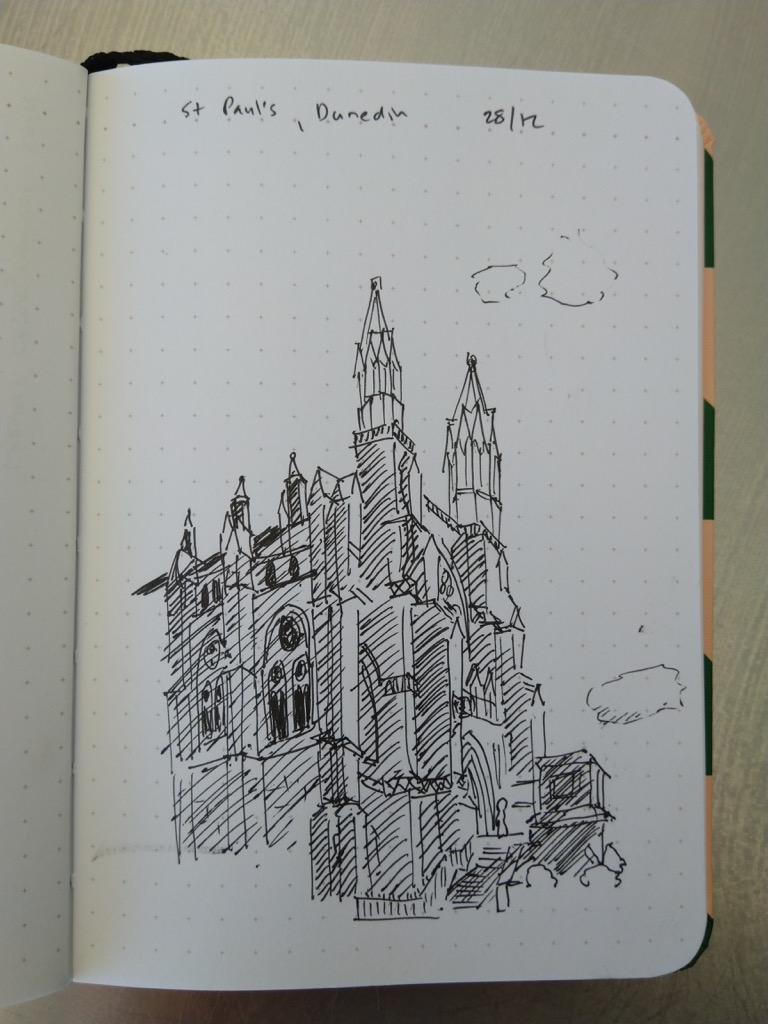 St Paul's, Dunedin 28/12